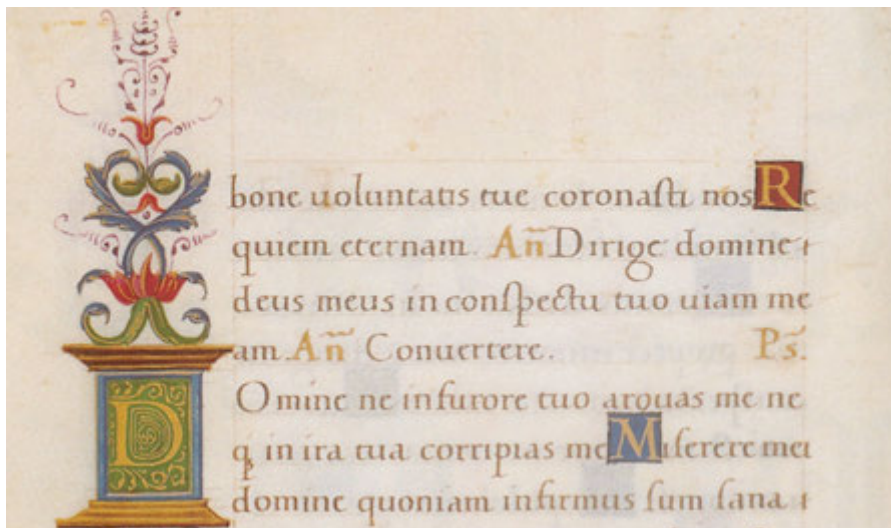 bone uoluntatis tue coronasti nos Re
quiem eternam. Añ Dirige domine
deus meus in conspectu tuo uiam me
am. Añ Conuertere. Ps̃.
DOmine ne in furore tuo arguas me ne
q in ira tua corripias me Miserere mei
domine quoniam infirmus sum sana